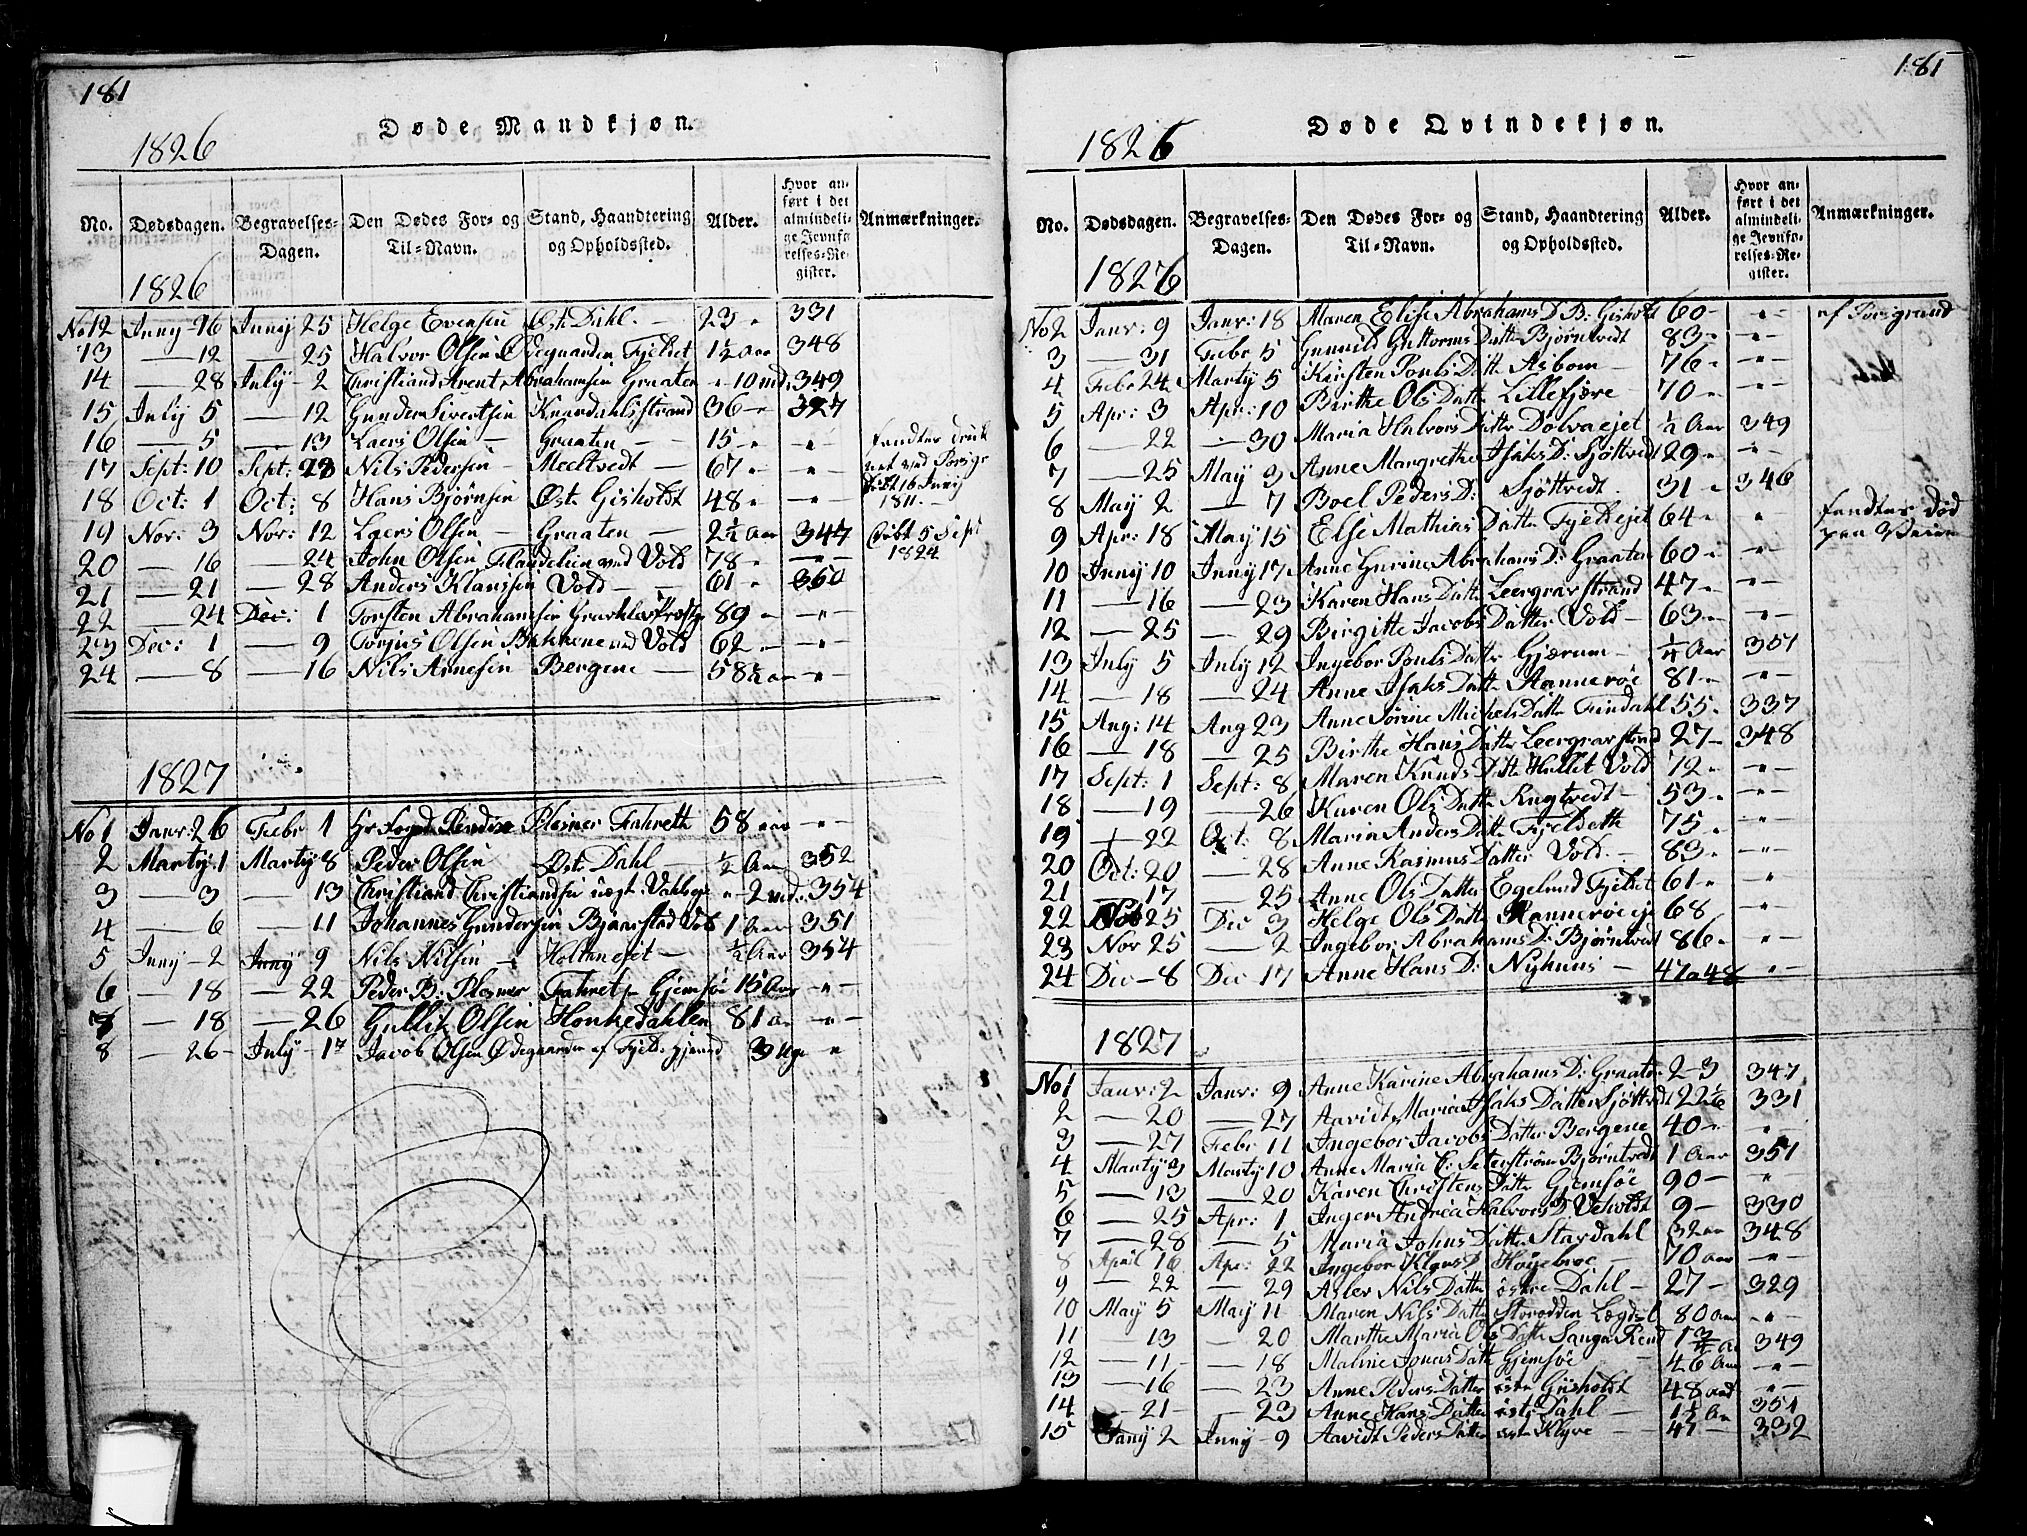 181
Døde Mandkjøn.
1826
No. Dødsdagen. Begravelses-Dagen. Den Dødes For- og Til-Navn. Stand, Haandtering og Opholdssted. Alder. Hvor anført i det almindelige Jevnførelses-Register. Anmærkninger.
1826
No 12 Juny 16 Juny 25 Helge Evensen Østr Dahl. 23 " 331
13 — 12 — 25 Halvor Olsen Ødegaarden Fjeldet 1½ Aar 348
14 — 28 July - 2 Christian Arent Abrahamsen Graaten " 10 md. 349
15 July 5 — 12 Gunder Sivertsen Knardahlsstrand 36 " 327
16 — 5 — 13 Laers Olsen — Graaten — 15 " " fandtes druk
17 Sept: 10 Sept: 28 Nils Pedersen — Meeltvedt — 67 " " net ved Porsgr
18 Oct: 1 Oct: 8 Hans Bjørnsen Østr Gisholdt 48 " — " — født 16 Juny 1811.
19 Nov: 3 Nov: 12 Laers Olsen — Graaten — 2½ Aar 347 født 5 Sept 1824
20 — 16 — 24 John Olsen Flaadelien ved Vold 78 — "
21 — 21 — 28 Anders Klausen Vold — 61 " 350
22 — 24 Dec: 1 Torsten Abrahamsen 89 — " —
23 Dec: 1 — 9 Torjus Olsen Bakkene ved Vold 62 — " —
24 — 8 — 16 Nils Arnesen Bergene — 58½ aar "
1827
No 1 Janr: 26 Febr 1 Plesner Fahreth 58 aar — " —
2 Marty 1 Marty 8 Peder Olsen Østr Dahl — ½ Aar 352
3 — 3 — 13 Christian Christiansen " 2 md. 354
4 — 6 — 11 Johannes Gundersen Bjaarstad Vold 1 Aar 351
5 Juny - 2 Juny 9 Nils Nilsen — Holtenejet — ½ Aar 354
6 — 18 — 22 Peder B: Plesner Fahret p Gjemsøe 15 Aar — " —
7 — 18 — 26 Gullik Olsen Honkedahlen 81 a — " —
8 — 26 - July - 17 Jacob Olsen Ødegaarden af Fjeld 3 Uge "
181
Døde Qvindekjøn.
1826
No. Dødsdagen. Begravelses-Dagen. Den Dødes For- og Til-Navn. Stand, Haandtering og Opholdssted. Alder. Hvor anført i det almindelige Jevnførelses-Register. Anmærkninger.
1826
No 2 Janr: 9 Janr: 18 Maren Elise Abrahams D B: Gisholt 60 — " — af Porsgrund
3 — 31 Febr 5 Gunild Guttorms Datter Bjørntvedt 83 — " —
4 Febr 24 Marty 5 Kirsten Pouls Datter Asbom — 76 " — " —
5 Apr: 3 Apr: 10 Birthe Ols Datter Lillefjære 70 " — " —
6 — 22 — 30 Maria Halvors Datter Dølvaejet ¼ Aar 349
7 — 25 May 3 Anne Margrethe Isaks D: Sjøttvedt 29 " — " —
8 May 2 — 7 Boel Peders D: Sjøttvedt 31 " 346
9 Apr: 18 May 15 Else Mathias Datter Fjeldejet 64 " " fandtes død paa Veien
10 Juny 10 Juny 17 Anne Gurine Abrahams D: Graaten 60 " — " —
11 — 16 — 23 Karen Hans Datter Leergravstrand 47 " — " —
12 — 25 — 29 Birgitte Jacobs Datter Vold — 63 " — " —
13 July 5 July 12 Ingebor Pouls Datter Gjærum — ¼ Aar 351
14 — 18 — 24 Anne Isaks Datter Hannerøe 81 " — " —
15 Aug: 14 Aug 23 Anne Sørine Michels Datter Findahl 55 " 337
16 — 18 — 25 Birthe Hans Datter Leergravstrand 27 — 348
17 Sept: 1 Sept: 8 Maren Knuds Datter Hullet Vold 72 " — " —
18 — 19 — 26 Karen Ols Datter Rugtvedt — 53 " — " —
19 — 22 Oct: 8 Maria Anders Datter Fjeldeth 75 " — " —
20 Oct: 20 — 28 Anne Rasmus Datter Vold — 83 " — " —
21 — 17 — 25 Anne Ols Datter Egelund Fjeldet 61 " — " —
22 Nov 25 Dec 3 Helge Ols Datter Hannerøeje 68 — " —
23 Nor 25 — 2 Ingebor Abrahams D: Bjørntvedt 86 " — " —
24 Dec — 8 Dec 17 Anne Hans D: Nyhuus — 47 a 48 "
1827
No 1 Janr: 2 Janr: 9 Anne Karine Abrahams D: Graaten 2-3 347
2 — 20 — 27 Aavidt Maria Isaks Datter Sjøttvedt 22½ 331
3 — 27 Febr 11 Ingebor Jacobs Datter Bergene 40 — " —
4 Marty 3 Marty 10 Anne Marie C: Seterstrøm Bjørntvedt 1 Aar 351
5 — 13 — 20 Karen Christens Datter Gjemsøe 90 — "
6 — 25 Apr: 1 Inger Andrea Halvors D Veholdt 9 — 330
7 — 28 — 5 Maria Johns Datter Stordahl 32 aa 348
8 April 16 Apr: 22 Ingebor Klaus D: Høgebroe — 70 aar — " —
9 — 22 — 29 Asler Nils Datter østre Dahl — 27 — 329
10 May 5 May 11 Maren Nils Datter Storodden Lægdsl 80 aar — " —
11 — 13 — 20 Marthe Maria Ols Datter 349
12 — 11 — 18 Maline Jonas Datter Gjemsøe 46 aar — " —
13 — 16 — 23 Anne Peders Datter østr Gisholdt 48 aar — " —
14 — 21 — 23 Anne Hans Datter østr Dahl — 1½ Aar 351
15 Juny 2 Juny 9 Aavidt Peders Datter østr Klyve — 47 — 332